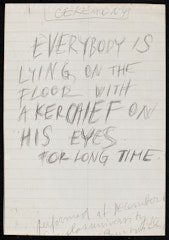 CEREMONY
EVERYBODY IS
LYING ON THE
FLOOR WITH
A KERCHIEF ON
HIS EYES
FOR LONG TIME.
Performed at